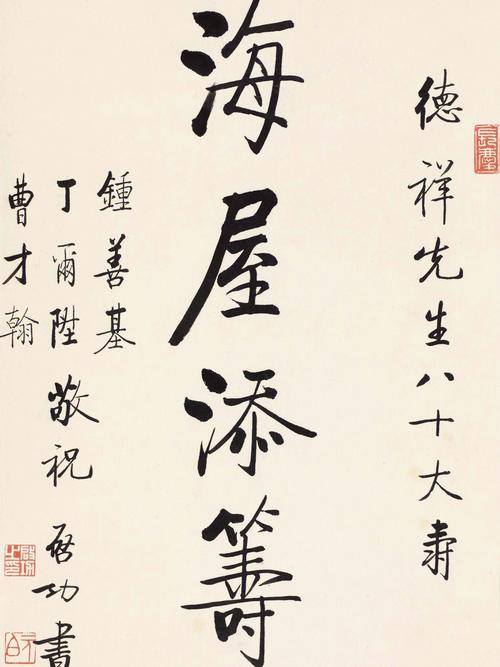 德祥先生八十大壽
海屋添籌
鍾善基
丁爾陞敬祝
曹才翰
啓功書